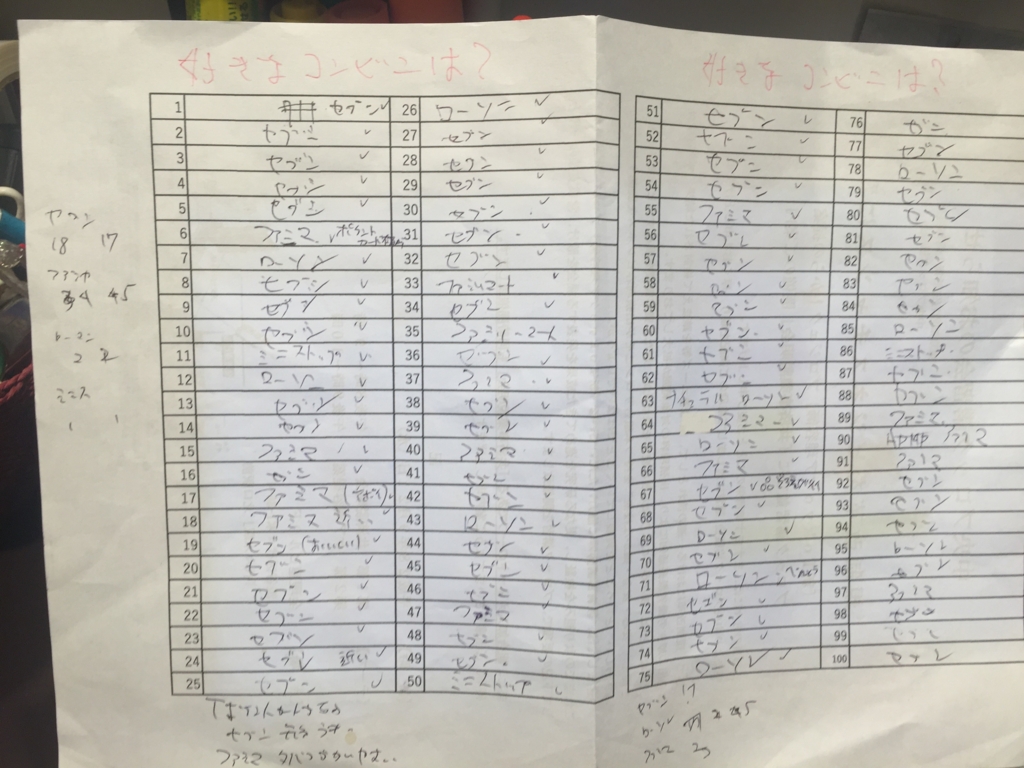 好きなコンビニは?
1 セブン
2 セブン
3 セブン
4 セブン
5 セブン
6 ファミマ ポイントカード
7 ローソン
8 セブン
9 セブン
10 セブン
11 ミニストップ
12 ローソン
13 セブン
14 セブン
15 ファミマ
16 セブン
17 ファミマ
18 ファミマ 近い
19 セブン (おいしい)
20 セブン
21 セブン
22 セブン
23 セブン
24 セブン 近い
25 セブン
26 ローソン
27 セブン
28 セブン
29 セブン
30 セブン
31 セブン
32 セブン
33 ファミリマート
34 セブン
35 ファミリーマート
36 セブン
37 ファミマ
38 セブン
39 セブン
40 ファミマ
41 セブン
42 セブン
43 ローソン
44 セブン
45 セブン
46 セブン
47 ファミマ
48 セブン
49 セブン
50 ミニストップ
セブン
18 17
ファミマ
45
ローソン
2 2
ミニス
1 1
Tポイントカードある
セブン
ファミマ
好きなコンビニは?
51 セブン
52 セブン
53 セブン
54 セブン
55 ファミマ
56 セブン
57 セブン
58
59 セブン
60 セブン
61 セブン
62 セブン
63 ナチュラルローソン
64 ファミマ
65 ローソン
66 ファミマ
67 セブン
68 セブン
69 ローソン
70 セブン
71 ローソン
72 セブン
73 セブン
74 セブン
75 ローソン
76 セブン
77 セブン
78 ローソン
79 セブン
80 セブン
81 セブン
82 セブン
83 セブン
84 セブン
85 ローソン
86 ミニストップ
87 セブン
88 セブン
89 ファミマ
90 ファミマ
91 ファミマ
92 セブン
93 セブン
94 セブン
95 ローソン
96 セブン
97 ファミマ
98 セブン
99 セブン
100 セブン
セブン 17
ローソン 45
ファミマ